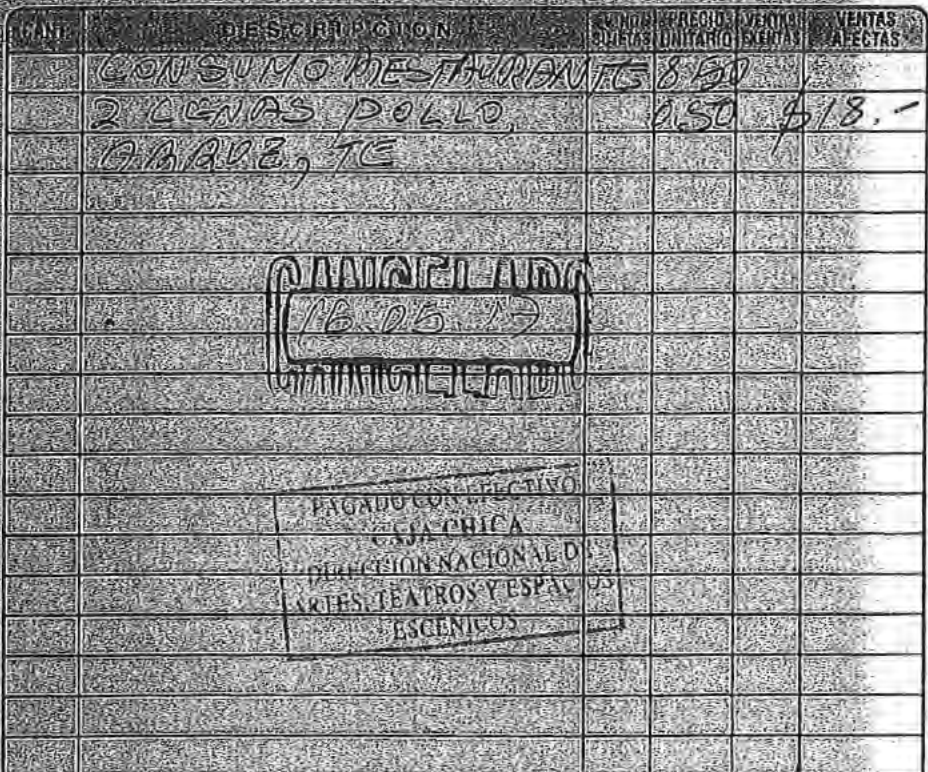 CANT. DESCRIPCION VENTAS NO SUJETAS PRECIO UNITARIO VENTAS EXENTAS VENTAS AFECTAS
CONSUMO RESTAURANTE 8.50
2 CENAS POLLO, 0.50 $18.-
ARROZ, TE
CANCELADO
16.05.17
CANCELADO
PAGADO CON EFECTIVO
CAJA CHICA
DIRECCION NACIONAL DE
ARTES, TEATROS Y ESPACIOS
ESCENICOS